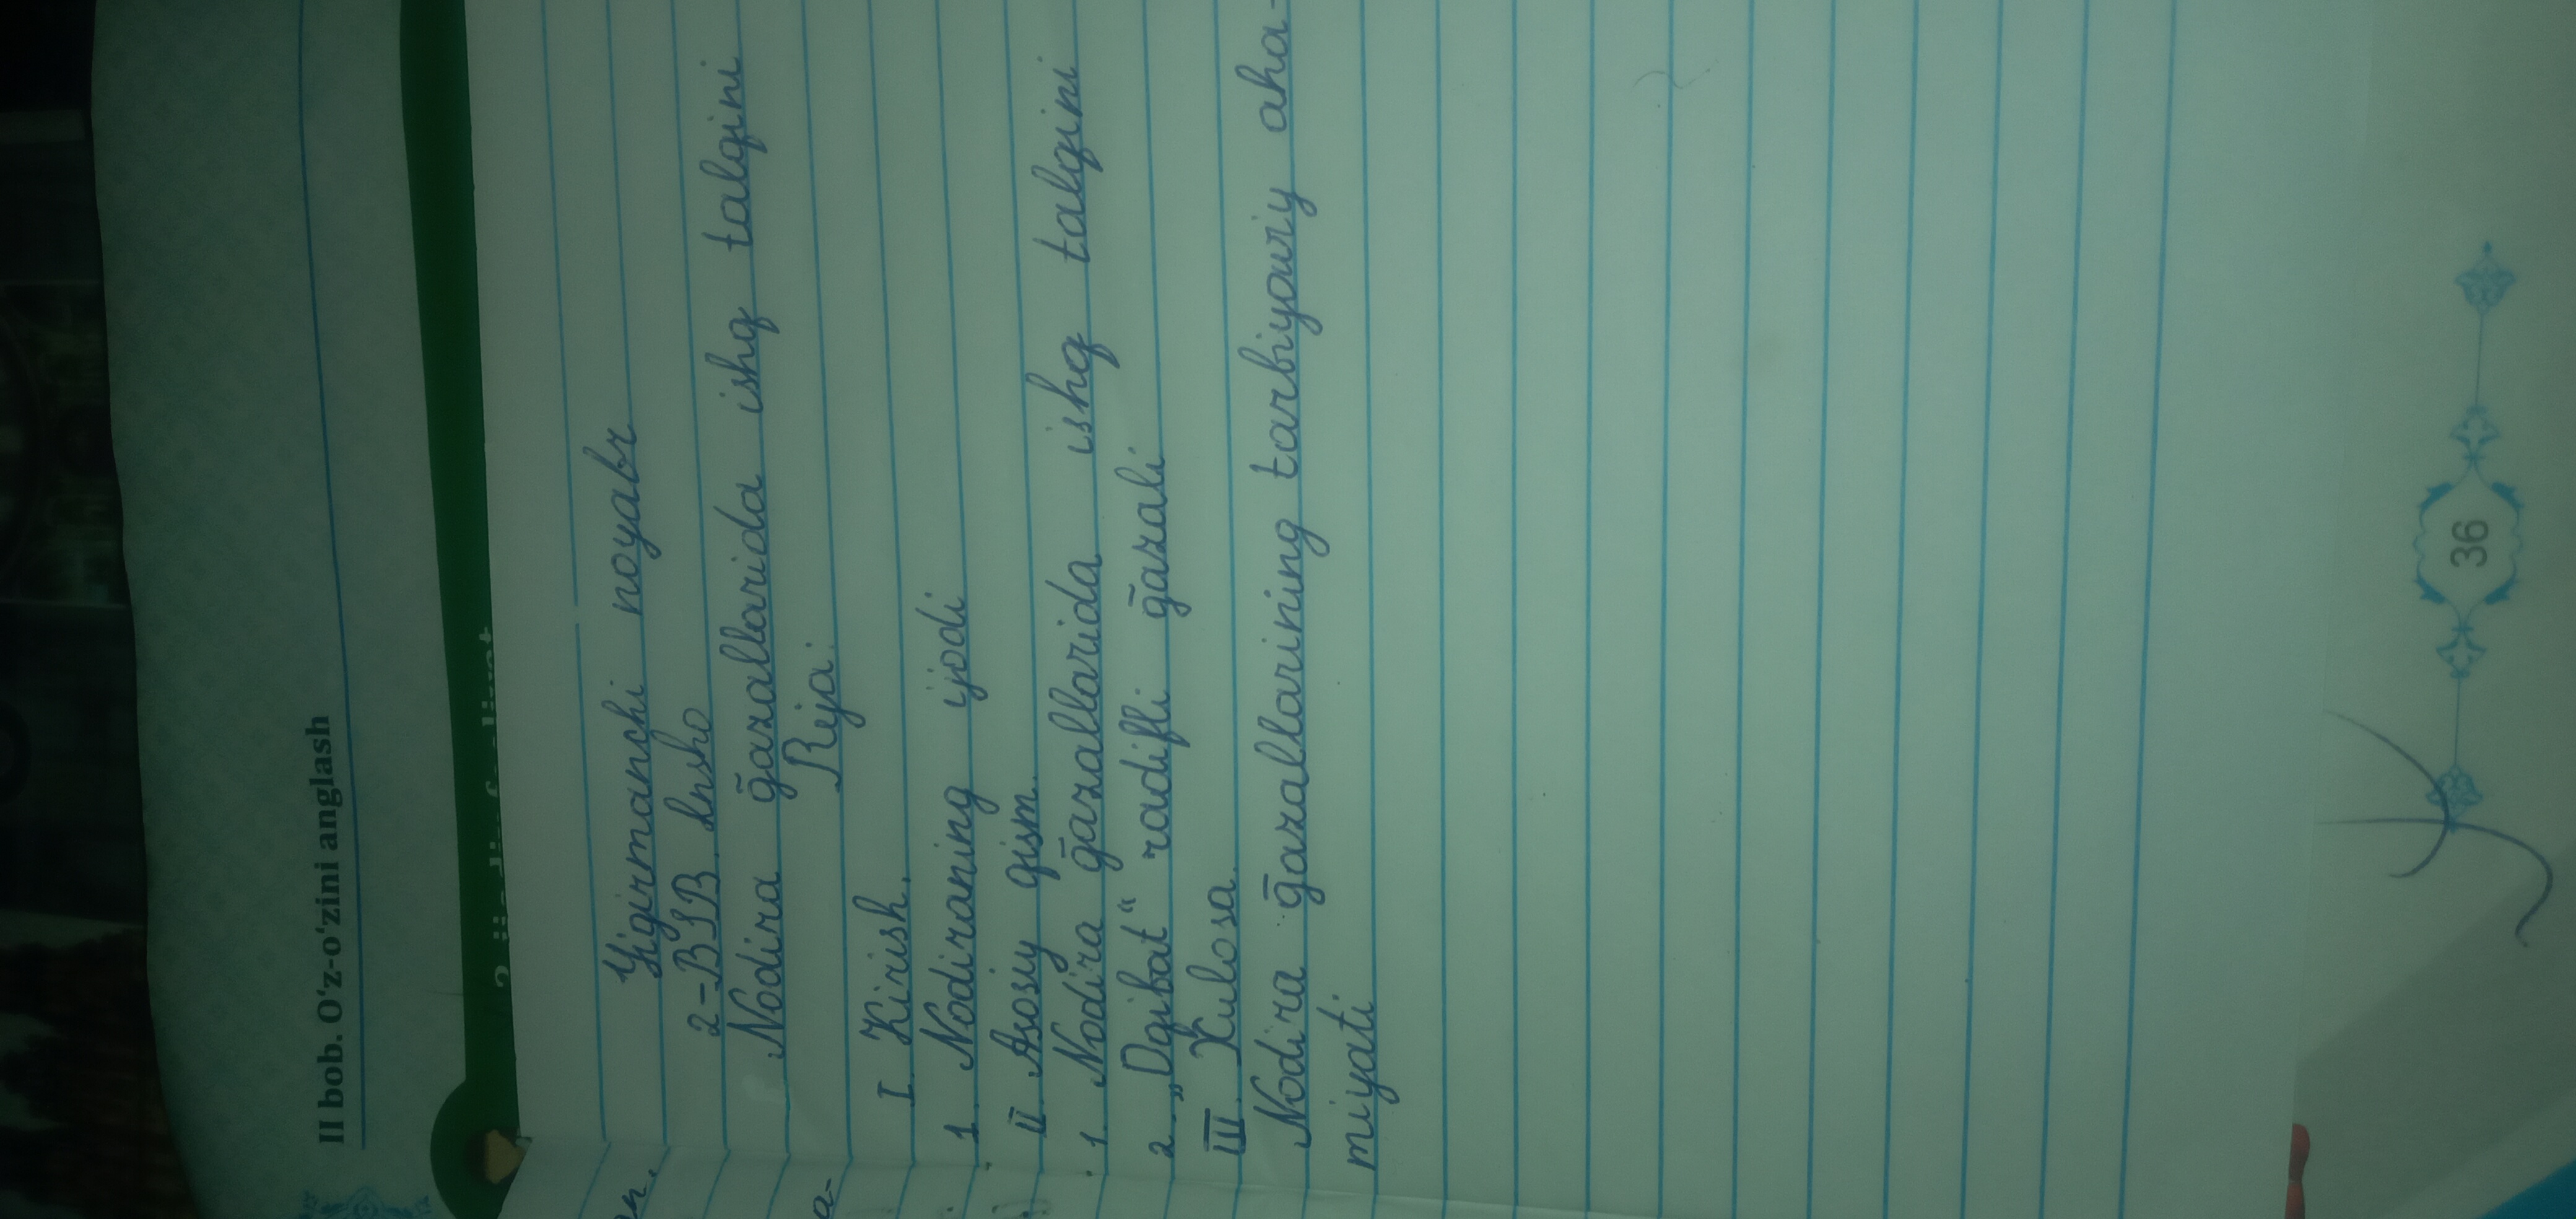 II bob. O‘z-o‘zini anglash
Yigirmanchi noyabr
2-BSB. Insho
Nodira ḡazallarida ishq talqini
Reja:
I. Kirish.
1. Nodiraning ijodi
II. Asosiy qism.
1. Nodira ḡazallarida ishq talqini
2. „Oqibat“ radifli ḡazali
III. Xulosa.
Nodira ḡazallarining tarbiyaviy aha-
miyati
36